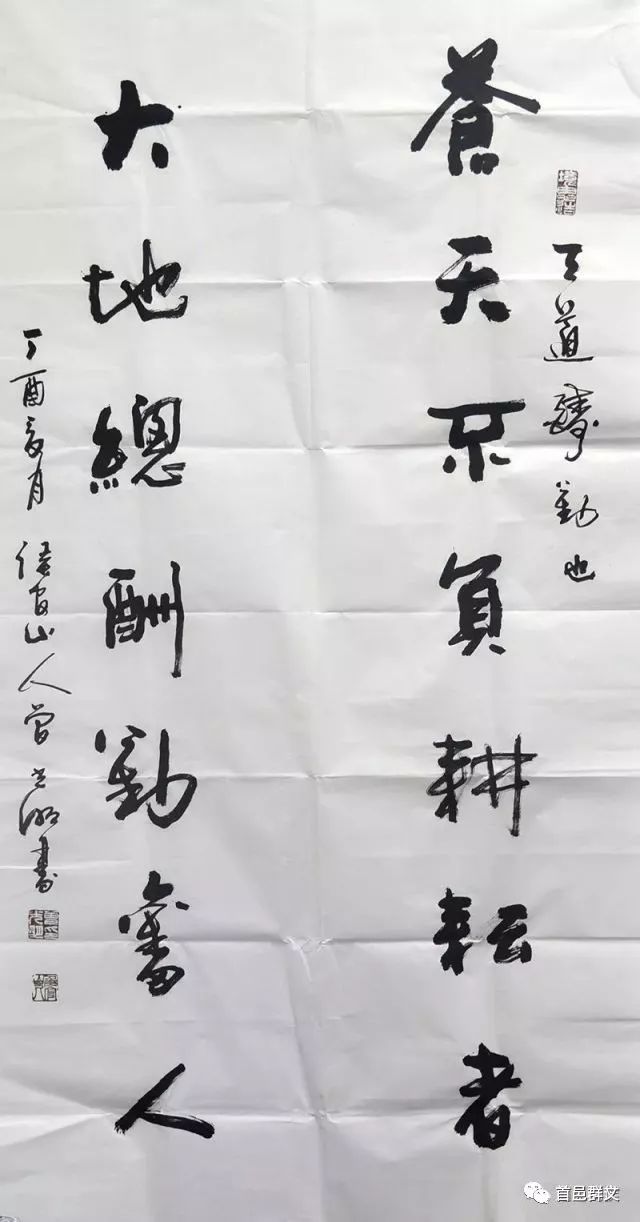 天道酬勤也
蒼天不負耕耘者
大地總酬勤奮人
丁酉亥月 山人曾書
首邑群文